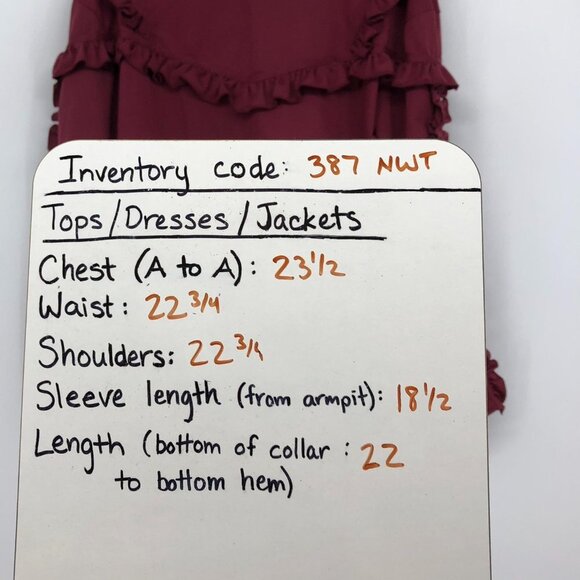 Inventory code: 387 NWT
Tops/Dresses/Jackets
Chest (A to A): 23 1/2
Waist: 22 3/4
Shoulders: 22 3/4
Sleeve length (from armpit): 18 1/2
Length (bottom of collar : 22
to bottom hem)